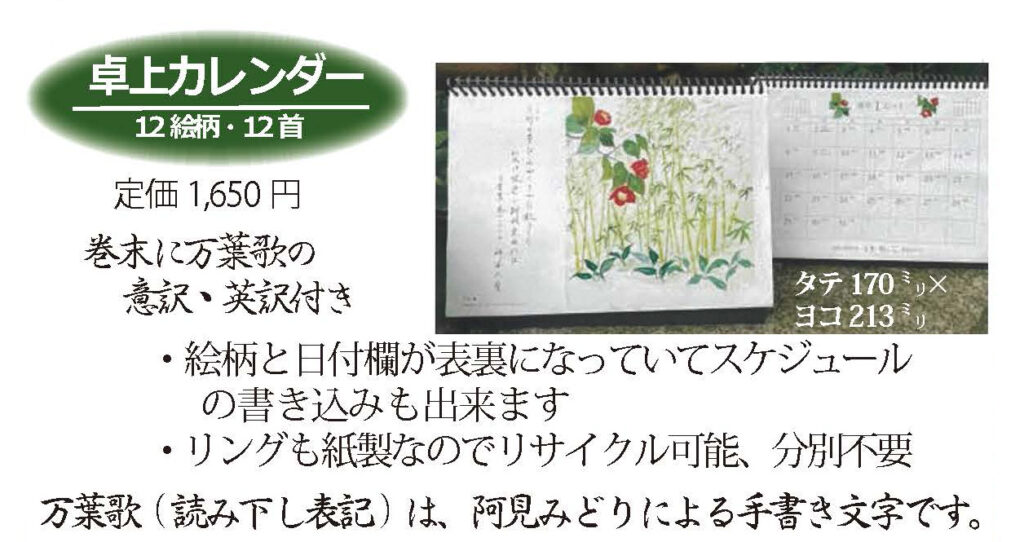 卓上カレンダー
12絵柄・12首
定価1,650円
巻末に万葉歌の
意訳、英訳付き
タテ170㍉×
ヨコ213㍉
・絵柄と日付欄が表裏になっていてスケジュール
の書き込みも出来ます
・リングも紙製なのでリサイクル可能、分別不要
万葉歌（読み下し表記）は、阿見みどりによる手書き文字です。